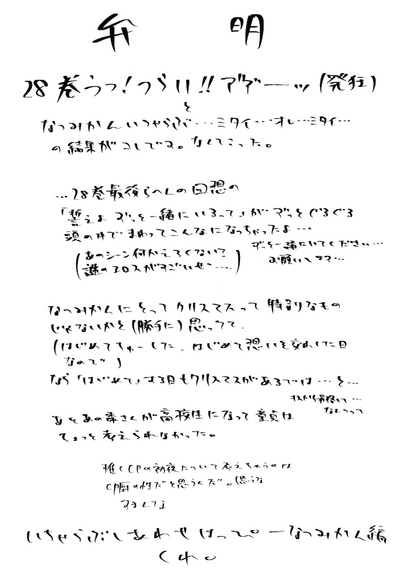 弁明
28巻うっ!つらい!!アアーッ(発狂)
と
なつみかんいちゃらぶ…ミタイ…オレ…ミタイ…
の結果がコレです。なんてこった。
…28巻最後らへんの回想の
「誓えよ ずっと一緒にいるって」がずっとぐるぐる
頭の中でまわってこんなになっちゃったよ…
(あのシーン何かえろくない?
謎のエロスがすごいぜ…)
ずっと一緒にいてください…
お願いします…
なつみかんにとってクリスマスって特別なもの
じゃないかと(勝手に)思ってて
(はじめてちゅーした、はじめて想いを交わした日
なので)
なら「はじめて」する日もクリスマスがあるでは…と…
なんつって
あとあの
さんが高校生になって童貞は
ちょっと考えられなかった。
推しCPの初夜について考えちゃうのは
CP厨の性だと思うんだ。思うな
すみません
いちゃらぶしあわせはっぴーなつみかん編
くれ。